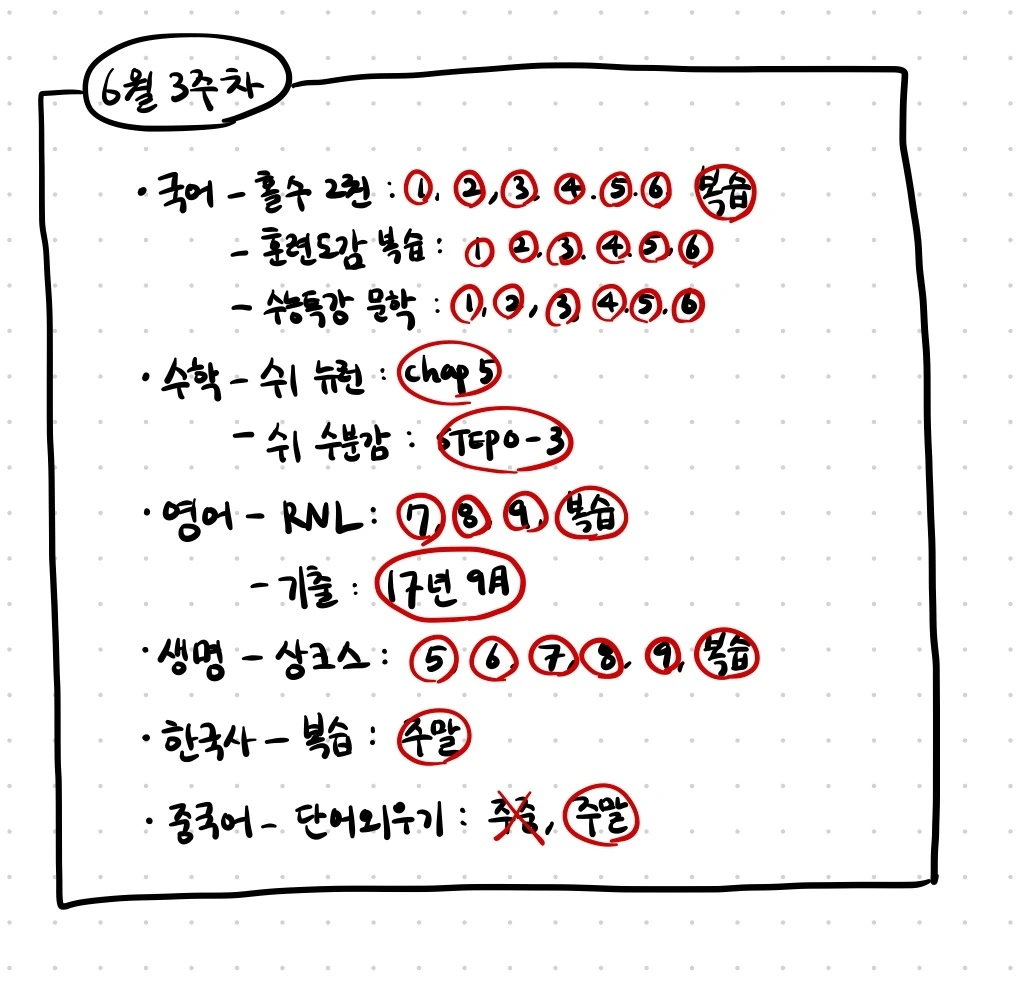 6월 3주차
· 국어 - 홀수 2권 : 1, 2, 3, 4. 5. 6 복습
- 훈련도감 복습 : 1 2, 3. 4. 5, 6
- 수능특강 문학 : 1, 2, 3, 4. 5. 6
· 수학 - 쉬 뉴런 : chap 5
- 쉬 수분감 : STEP 0 - 3
· 영어 - RNL : 7, 8, 9, 복습
- 기출 : 17년 9月
· 생명 - 상크스 : 5 6, 7, 8, 9, 복습
· 한국사 - 복습 : 주말
· 중국어 - 단어외우기 : 주중, 주말